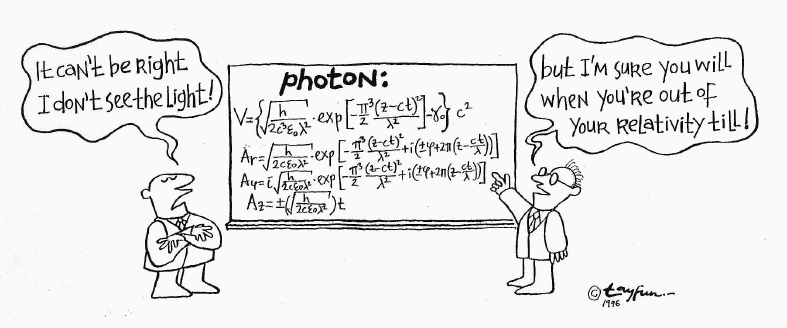 It can't be right
I don't see the light!
photon:
V={√(h/2c³ε₀λ²)·exp[-π³/2 (z-ct)²/λ²]-γ₀} c²
Ar=√(h/2cε₀λ²)·exp[-π³/2 (z-ct)²/λ²+i(±φ+2π(z-ct/λ))]
Aφ=i√(h/2cε₀λ²)·exp[-π³/2 (z-ct)²/λ²+i(±φ+2π(z-ct/λ))]
Az=±(√(h/2cε₀λ²))t
but I'm sure you will
when you're out of
your relativity till!
© tayfun
1996